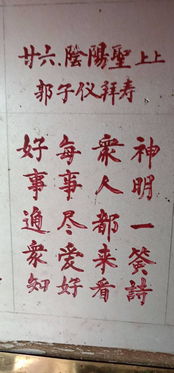 廿六.陰陽聖上上
郭子仪拜寿
神明一簽詩
衆人都来看
每事尽爱好
好事通衆知